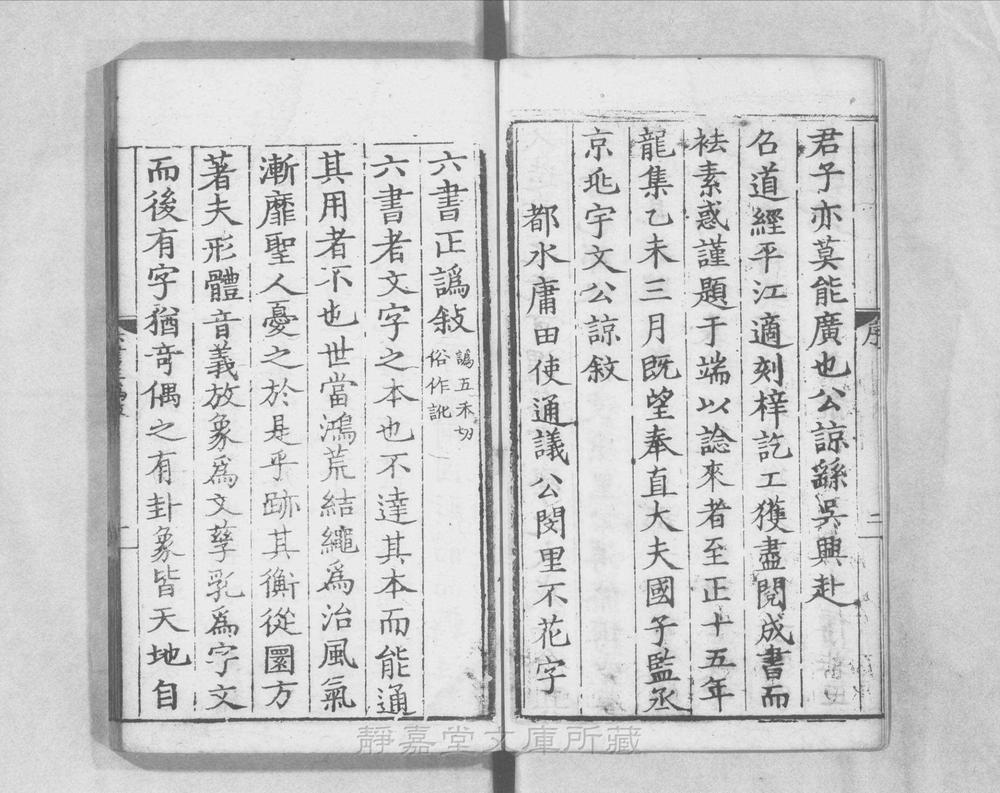 君子亦莫能廣也公諒繇吳興赴
召道經平江適刻梓訖工獲盡閱成書而
袪素惑謹題于端以諗來者至正十五年
龍集乙未三月既望奉直大夫國子監丞
京兆宇文公諒敘
都水庸田使通議公閔里不花字
序
二
六書正譌敍
譌五禾切
俗作訛
六書者文字之本也不達其本而能通
其用者不也世當鴻荒結繩爲治風氣
漸靡聖人憂之於是乎跡其衡從圜方
著夫形體音義放象爲文孳乳爲字文
而後有字猶奇偶之有卦象皆天地自
一
靜嘉堂文庫所藏